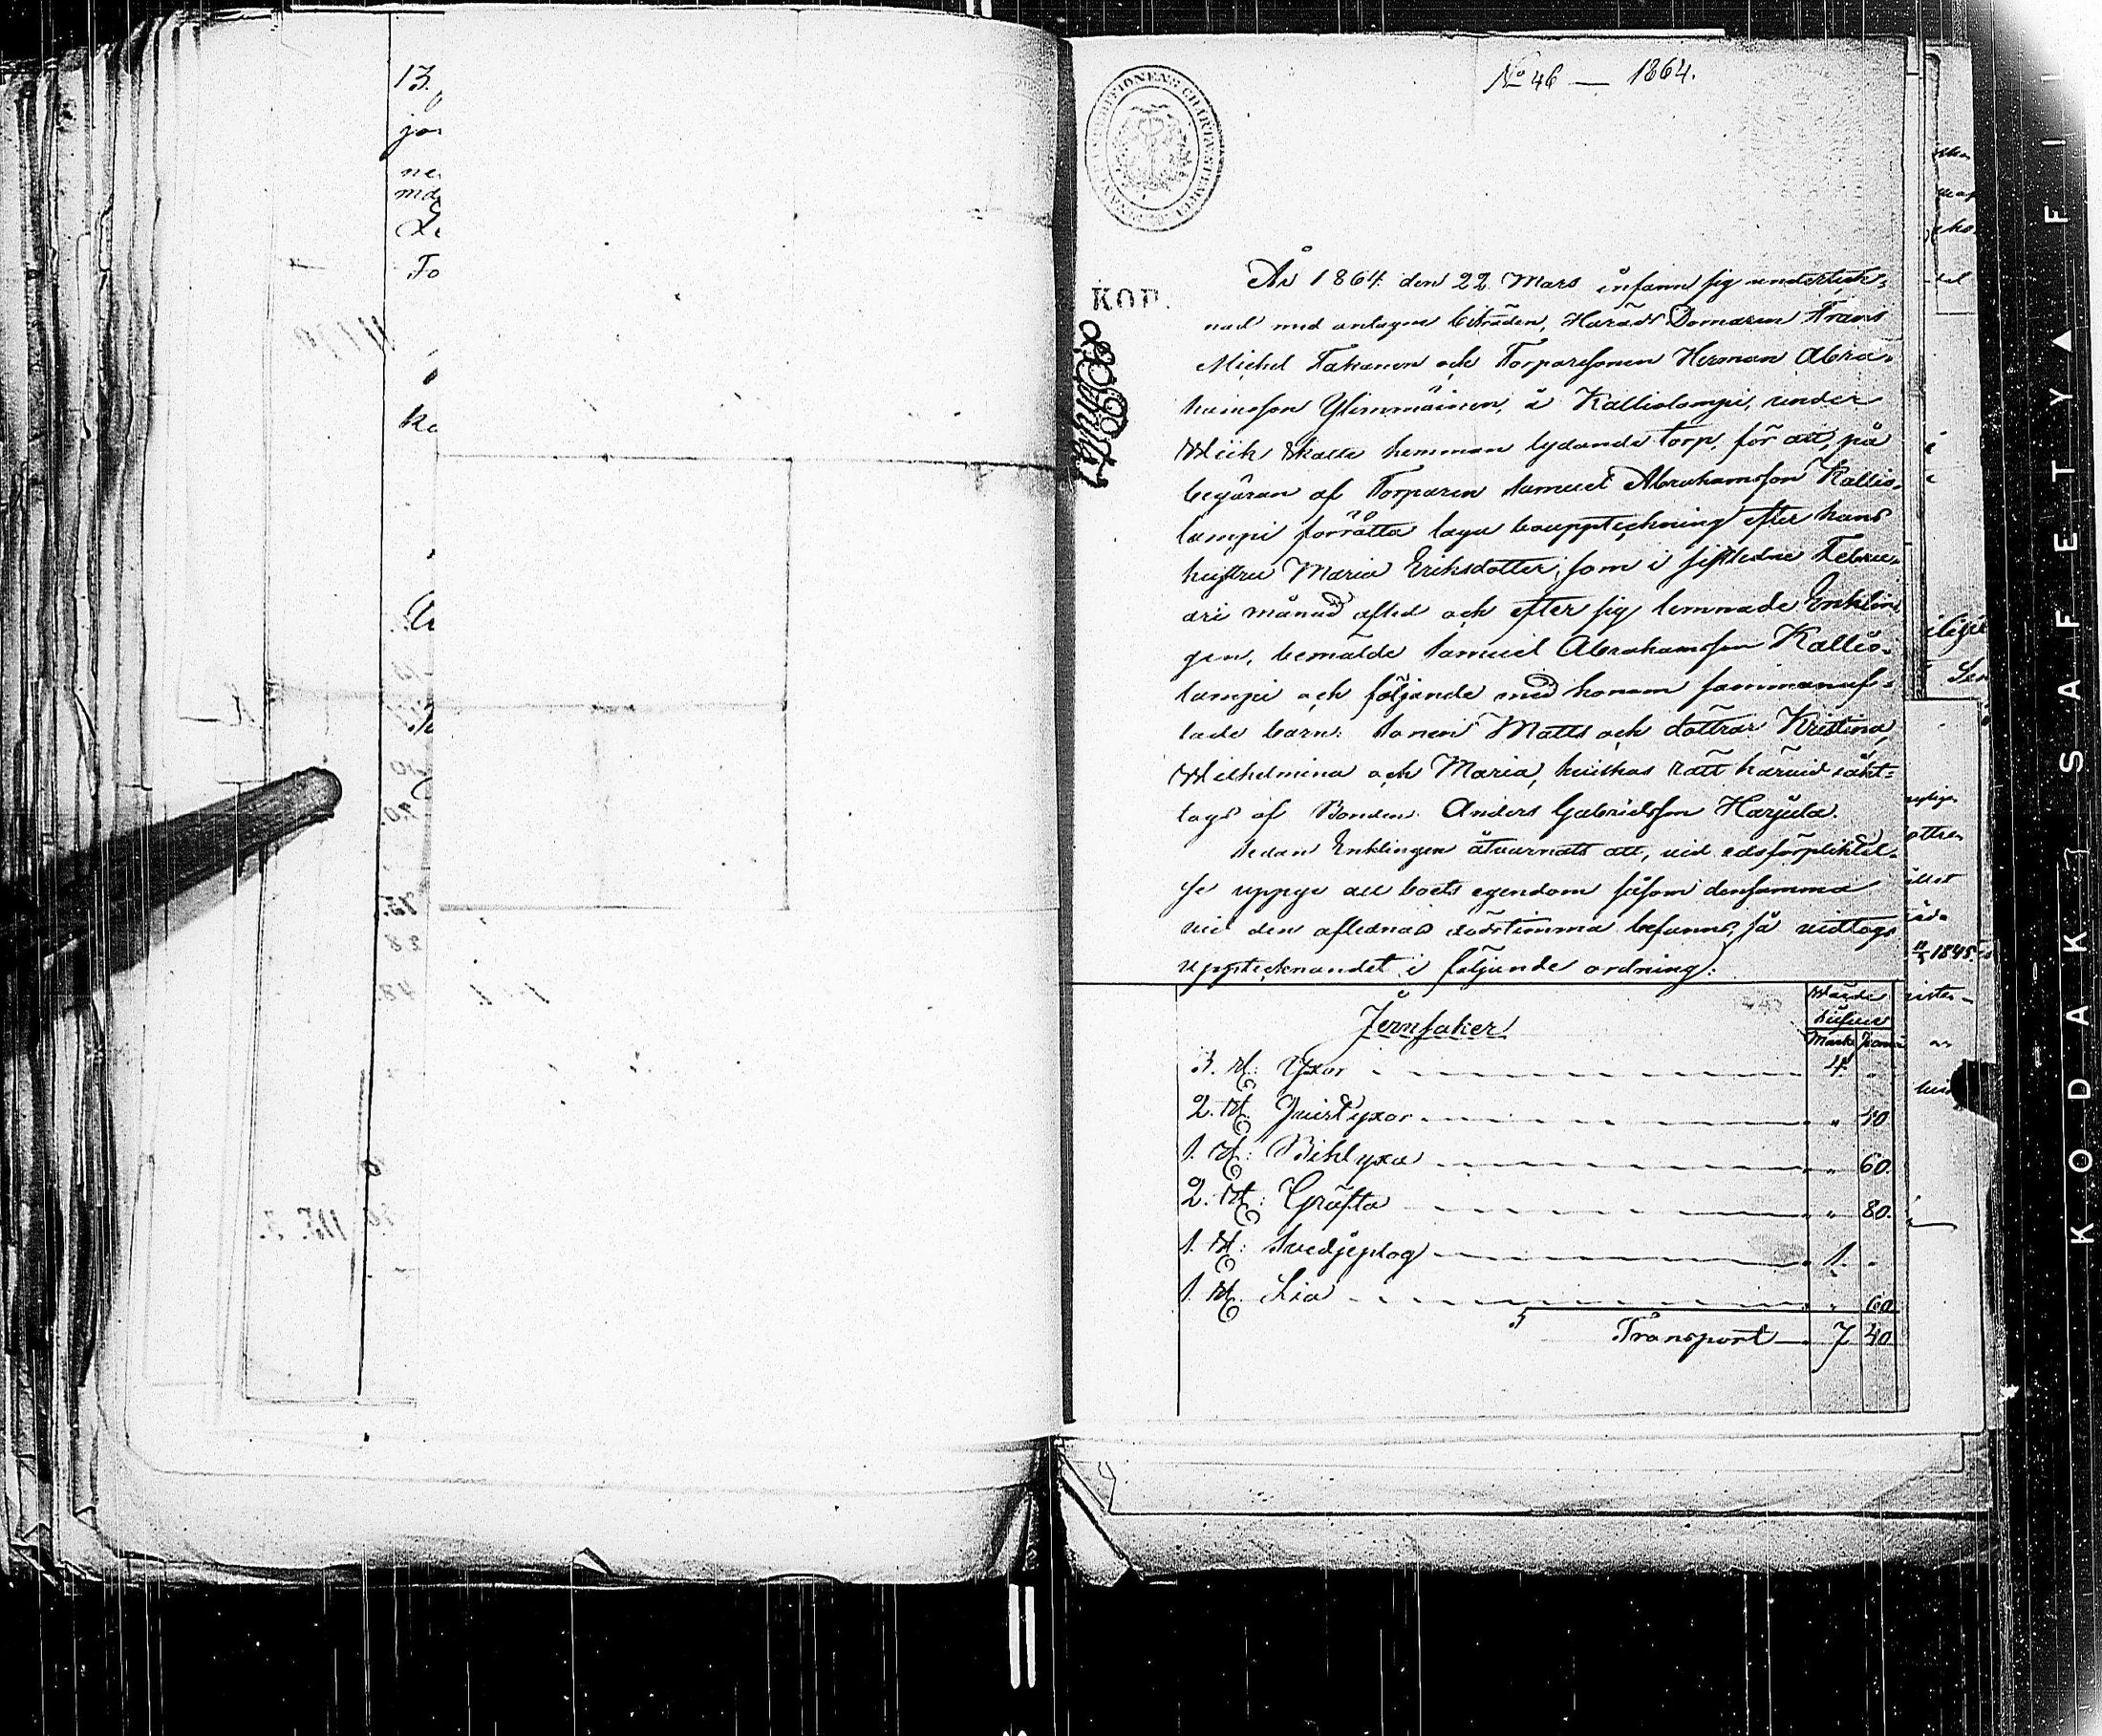 13.
jor
ne
mda
Le
To
ka
No 46 — 1864.
KOP.
År 1864 den 22 Mars infann sig underteck=
nad med antagne biträden, Härads Domaren Frans
Michel Takanen och Torparesonen Herman Abra-
hamsson Ylimmäinen, å Kalliolampi, under
Wiik Skatte hemman lydande torp, för att, på
begäran af Torparen Samuel Abrahamsson Kallio-
lampi förrätta laga bouppteckning efter hans
hustru Maria Eriksdotter, som i sistledne Febru-
ari månad afled och efter sig lemnade Enklin-
gen, bemälde Samuel Abrahamsson Kallio-
lampi och följande med honom sammanaf=
lade barn: Sonen Matts och döttrar Kristina,
Wilhelmina och Maria, hvilkas rätt härvid iakt=
tags af Bonden Anders Gabrielsson Harjula.
Sedan Enklingen åtvarnats att, vid edsförpliktel-
se uppge all boets egendom såsom densamma
vid den aflednas dödstimma befanns, så vidtogs
upptecknandet i följande ordning:
Wärde
Silfver
Mark Penni
Jernsaker
3. St: Yxor 4 "
2. St. Qvistyxor " 40
1. St: Bihlyxa " 60.
2. St: Gräfta " 80.
1. St: Svedjeplog 1. "
1. St. Lia " 60
Transport 7 40
1845
KODAK SAFETY FI